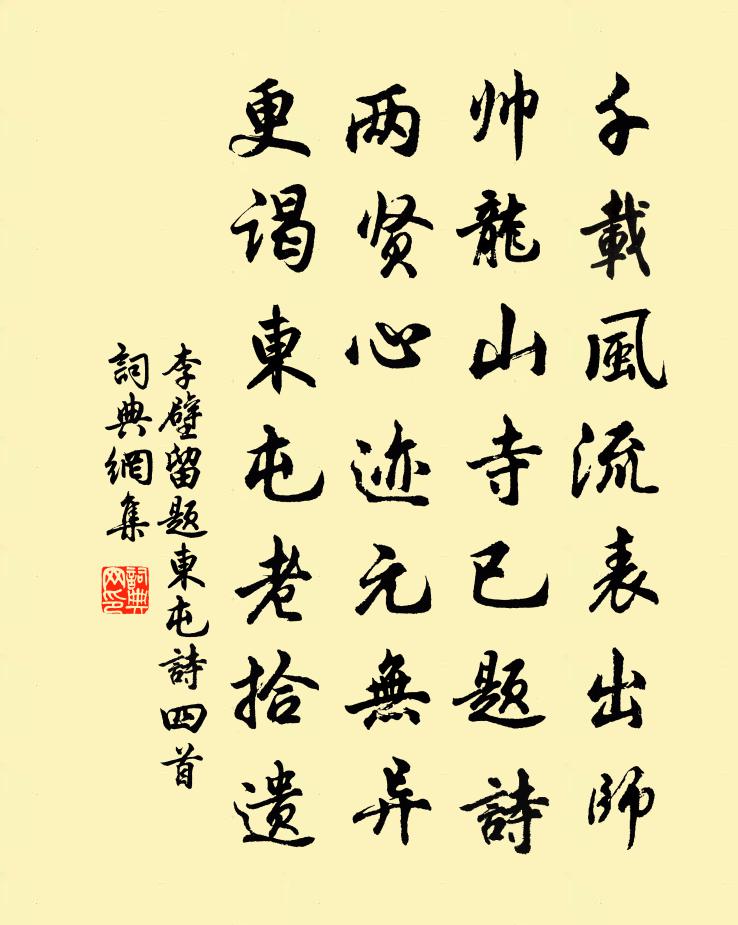 千載風流表出師
帅龍山寺已题詩
两贤心迹元無异
更谒東屯老拾遗
李壁留题東屯詩四首
詞典網集
詞典网印